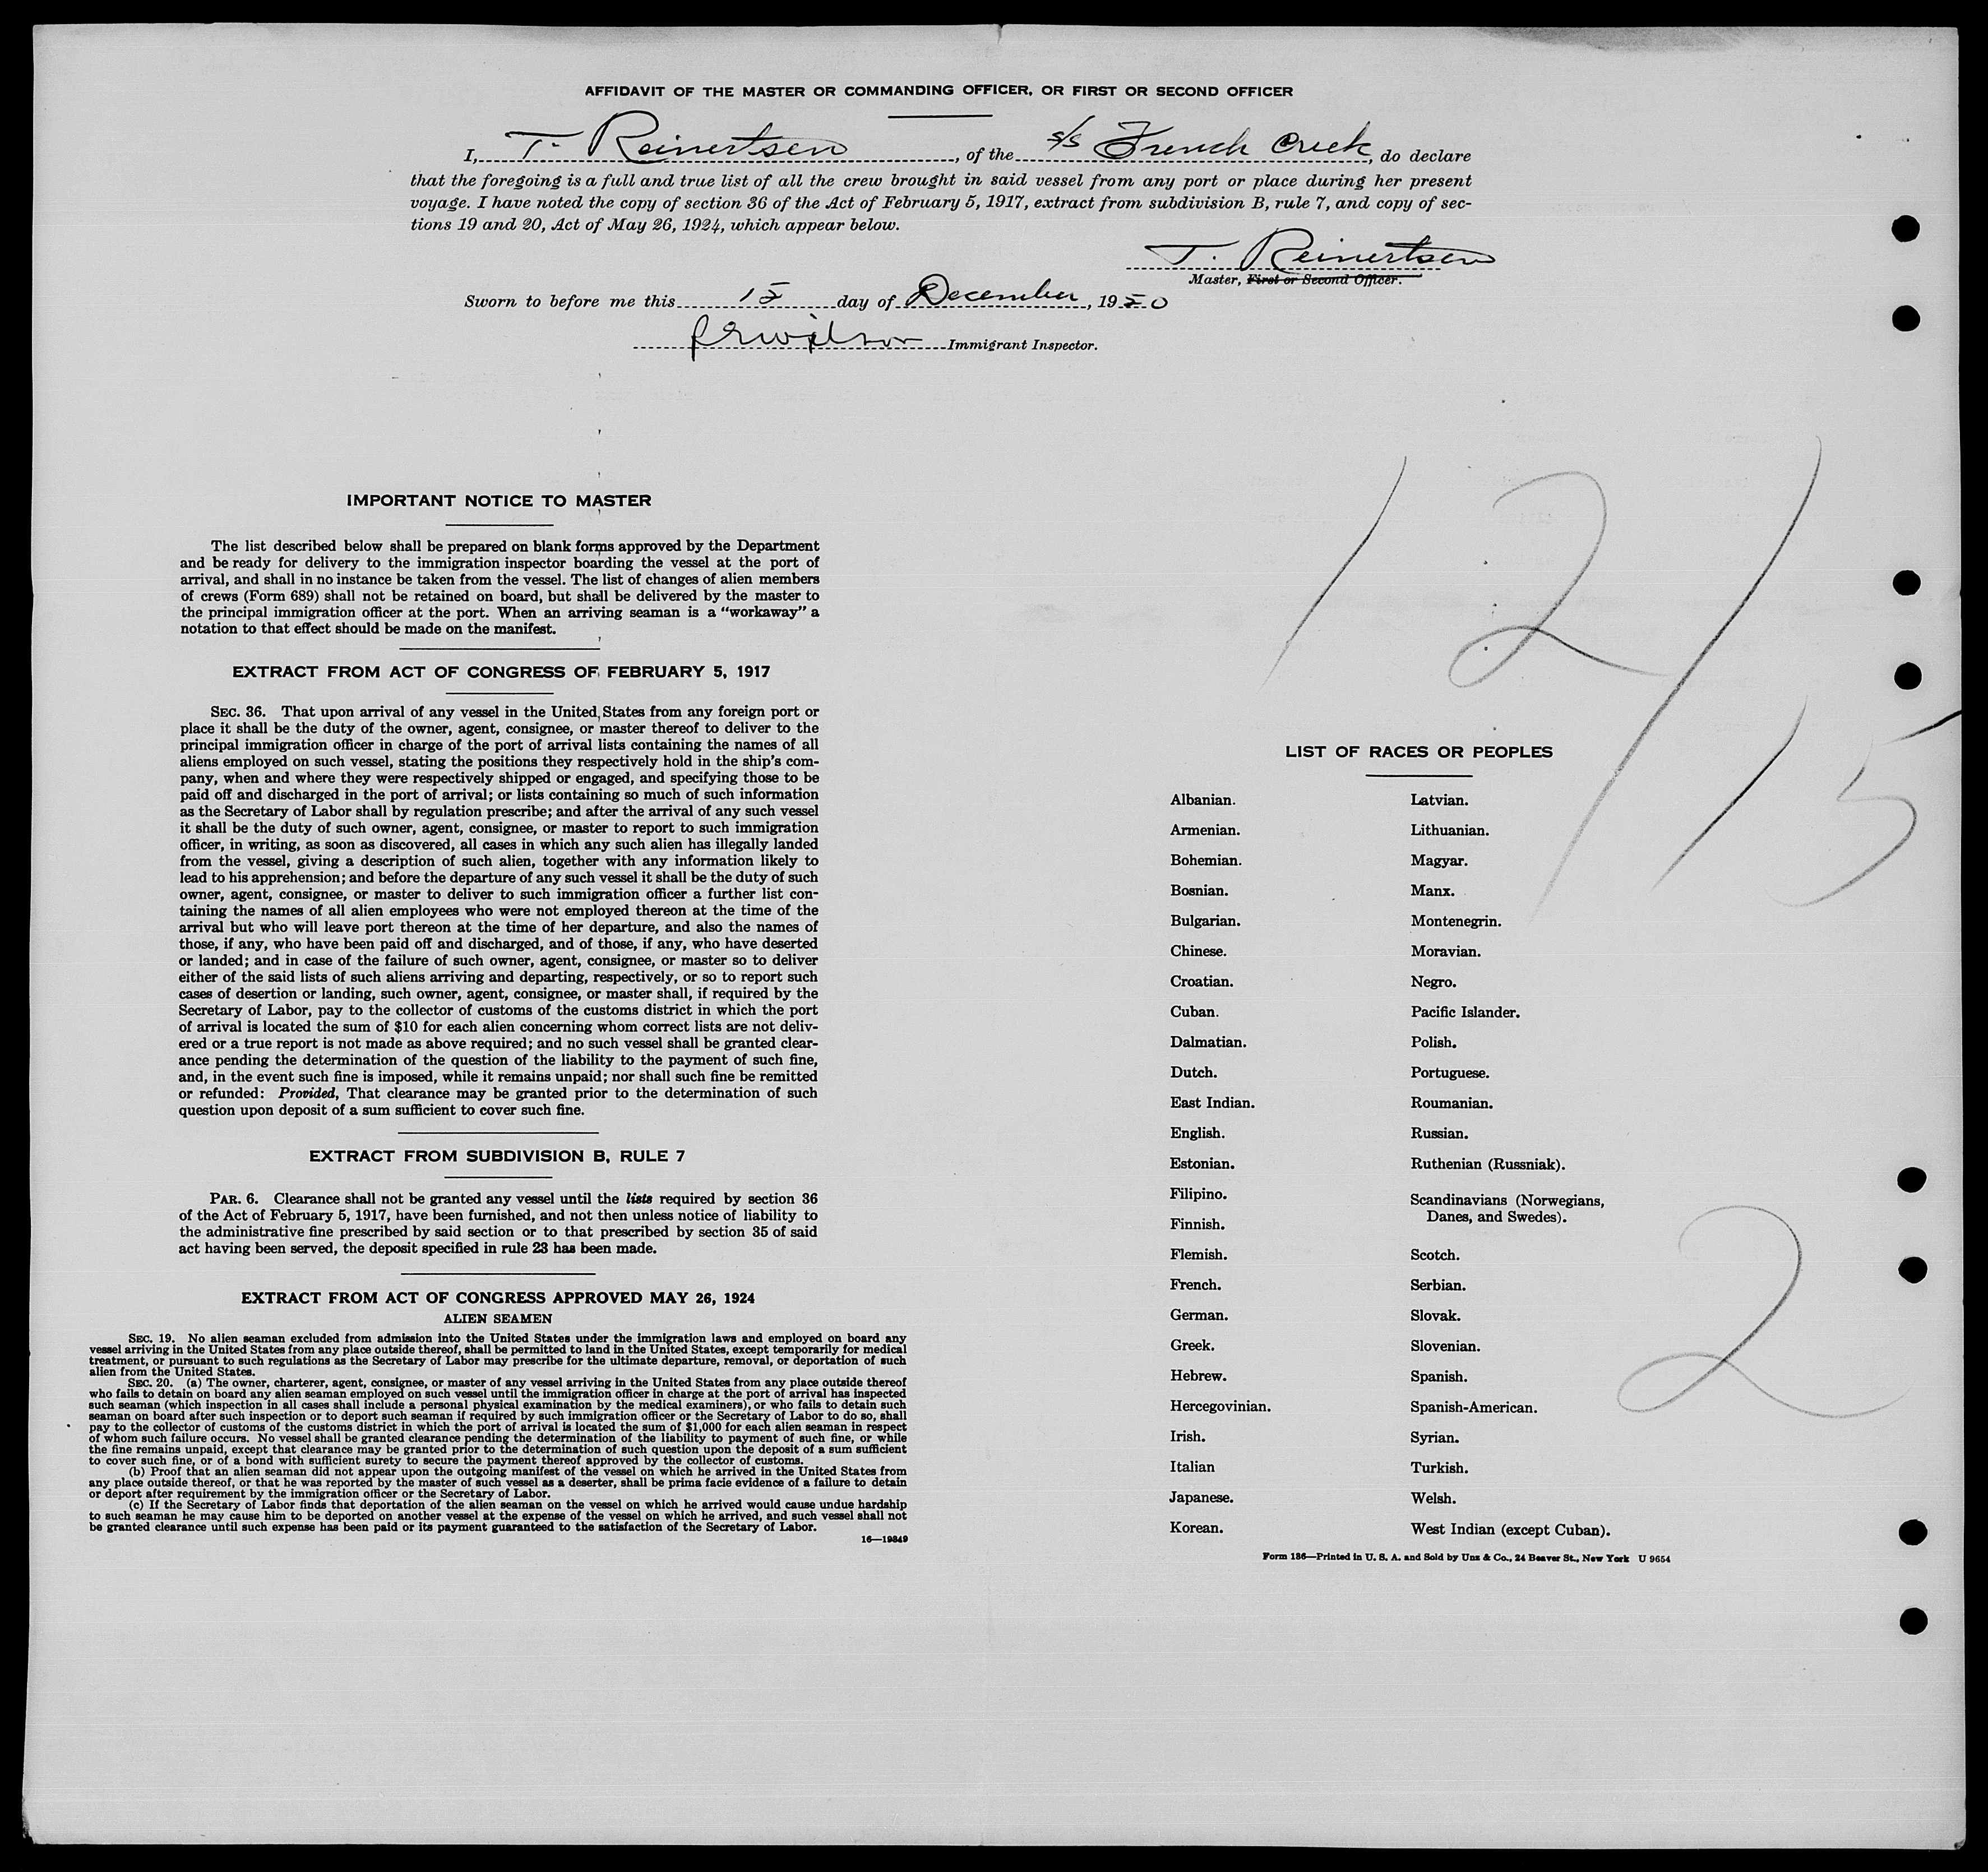 AFFIDAVIT OF THE MASTER OR COMMANDING OFFICER, OR FIRST OR SECOND OFFICER
I, T. Reinertsen, of the s/s French Creek, do declare
that the foregoing is a full and true list of all the crew brought in said vessel from any port or place during her present
voyage. I have noted the copy of section 36 of the Act of February 5, 1917, extract from subdivision B, rule 7, and copy of sec-
tions 19 and 20, Act of May 26, 1924, which appear below.
T. Reinertsen
Master, First or Second Officer.
Sworn to before me this 15 day of December, 1950
Wilson Immigrant Inspector.
IMPORTANT NOTICE TO MASTER
The list described below shall be prepared on blank forms approved by the Department
and be ready for delivery to the immigration inspector boarding the vessel at the port of
arrival, and shall in no instance be taken from the vessel. The list of changes of alien members
of crews (Form 689) shall not be retained on board, but shall be delivered by the master to
the principal immigration officer at the port. When an arriving seaman is a "workaway" a
notation to that effect should be made on the manifest.
EXTRACT FROM ACT OF CONGRESS OF FEBRUARY 5, 1917
SEC. 36. That upon arrival of any vessel in the United States from any foreign port or
place it shall be the duty of the owner, agent, consignee, or master thereof to deliver to the
principal immigration officer in charge of the port of arrival lists containing the names of all
aliens employed on such vessel, stating the positions they respectively hold in the ship's com-
pany, when and where they were respectively shipped or engaged, and specifying those to be
paid off and discharged in the port of arrival; or lists containing so much of such information
as the Secretary of Labor shall by regulation prescribe; and after the arrival of any such vessel
it shall be the duty of such owner, agent, consignee, or master to report to such immigration
officer, in writing, as soon as discovered, all cases in which any such alien has illegally landed
from the vessel, giving a description of such alien, together with any information likely to
lead to his apprehension; and before the departure of any such vessel it shall be the duty of such
owner, agent, consignee, or master to deliver to such immigration officer a further list con-
taining the names of all alien employees who were not employed thereon at the time of the
arrival but who will leave port thereon at the time of her departure, and also the names of
those, if any, who have been paid off and discharged, and of those, if any, who have deserted
or landed; and in case of the failure of such owner, agent, consignee, or master so to deliver
either of the said lists of such aliens arriving and departing, respectively, or so to report such
cases of desertion or landing, such owner, agent, consignee, or master shall, if required by the
Secretary of Labor, pay to the collector of customs of the customs district in which the port
of arrival is located the sum of $10 for each alien concerning whom correct lists are not deliv-
ered or a true report is not made as above required; and no such vessel shall be granted clear-
ance pending the determination of the question of the liability to the payment of such fine,
and, in the event such fine is imposed, while it remains unpaid; nor shall such fine be remitted
or refunded: Provided, That clearance may be granted prior to the determination of such
question upon deposit of a sum sufficient to cover such fine.
EXTRACT FROM SUBDIVISION B, RULE 7
PAR. 6. Clearance shall not be granted any vessel until the lists required by section 36
of the Act of February 5, 1917, have been furnished, and not then unless notice of liability to
the administrative fine prescribed by said section or to that prescribed by section 35 of said
act having been served, the deposit specified in rule 23 has been made.
EXTRACT FROM ACT OF CONGRESS APPROVED MAY 26, 1924
ALIEN SEAMEN
SEC. 19. No alien seaman excluded from admission into the United States under the immigration laws and employed on board any
vessel arriving in the United States from any place outside thereof, shall be permitted to land in the United States, except temporarily for medical
treatment, or pursuant to such regulations as the Secretary of Labor may prescribe for the ultimate departure, removal, or deportation of such
alien from the United States.
SEC. 20. (a) The owner, charterer, agent, consignee, or master of any vessel arriving in the United States from any place outside thereof
who fails to detain on board any alien seaman employed on such vessel until the immigration officer in charge at the port of arrival has inspected
such seaman (which inspection in all cases shall include a personal physical examination by the medical examiners), or who fails to detain such
seaman on board after such inspection or to deport such seaman if required by such immigration officer or the Secretary of Labor to do so, shall
pay to the collector of customs of the customs district in which the port of arrival is located the sum of $1,000 for each alien seaman in respect
of whom such failure occurs. No vessel shall be granted clearance pending the determination of the liability to payment of such fine, or while
the fine remains unpaid, except that clearance may be granted prior to the determination of such question upon the deposit of a sum sufficient
to cover such fine, or of a bond with sufficient surety to secure the payment thereof approved by the collector of customs.
(b) Proof that an alien seaman did not appear upon the outgoing manifest of the vessel on which he arrived in the United States from
any place outside thereof, or that he was reported by the master of such vessel as a deserter, shall be prima facie evidence of a failure to detain
or deport after requirement by the immigration officer or the Secretary of Labor.
(c) If the Secretary of Labor finds that deportation of the alien seaman on the vessel on which he arrived would cause undue hardship
to such seaman he may cause him to be deported on another vessel at the expense of the vessel on which he arrived, and such vessel shall not
be granted clearance until such expense has been paid or its payment guaranteed to the satisfaction of the Secretary of Labor.
16—19849
12/15
LIST OF RACES OR PEOPLES
Albanian.
Armenian.
Bohemian.
Bosnian.
Bulgarian.
Chinese.
Croatian.
Cuban.
Dalmatian.
Dutch.
East Indian.
English.
Estonian.
Filipino.
Finnish.
Flemish.
French.
German.
Greek.
Hebrew.
Hercegovinian.
Irish.
Italian
Japanese.
Korean.
Latvian.
Lithuanian.
Magyar.
Manx.
Montenegrin.
Moravian.
Negro.
Pacific Islander.
Polish.
Portuguese.
Roumanian.
Russian.
Ruthenian (Russniak).
Scandinavians (Norwegians,
Danes, and Swedes).
Scotch.
Serbian.
Slovak.
Slovenian.
Spanish.
Spanish-American.
Syrian.
Turkish.
Welsh.
West Indian (except Cuban).
2
Form 186—Printed in U. S. A. and Sold by Unz & Co., 24 Beaver St., New York U 9654